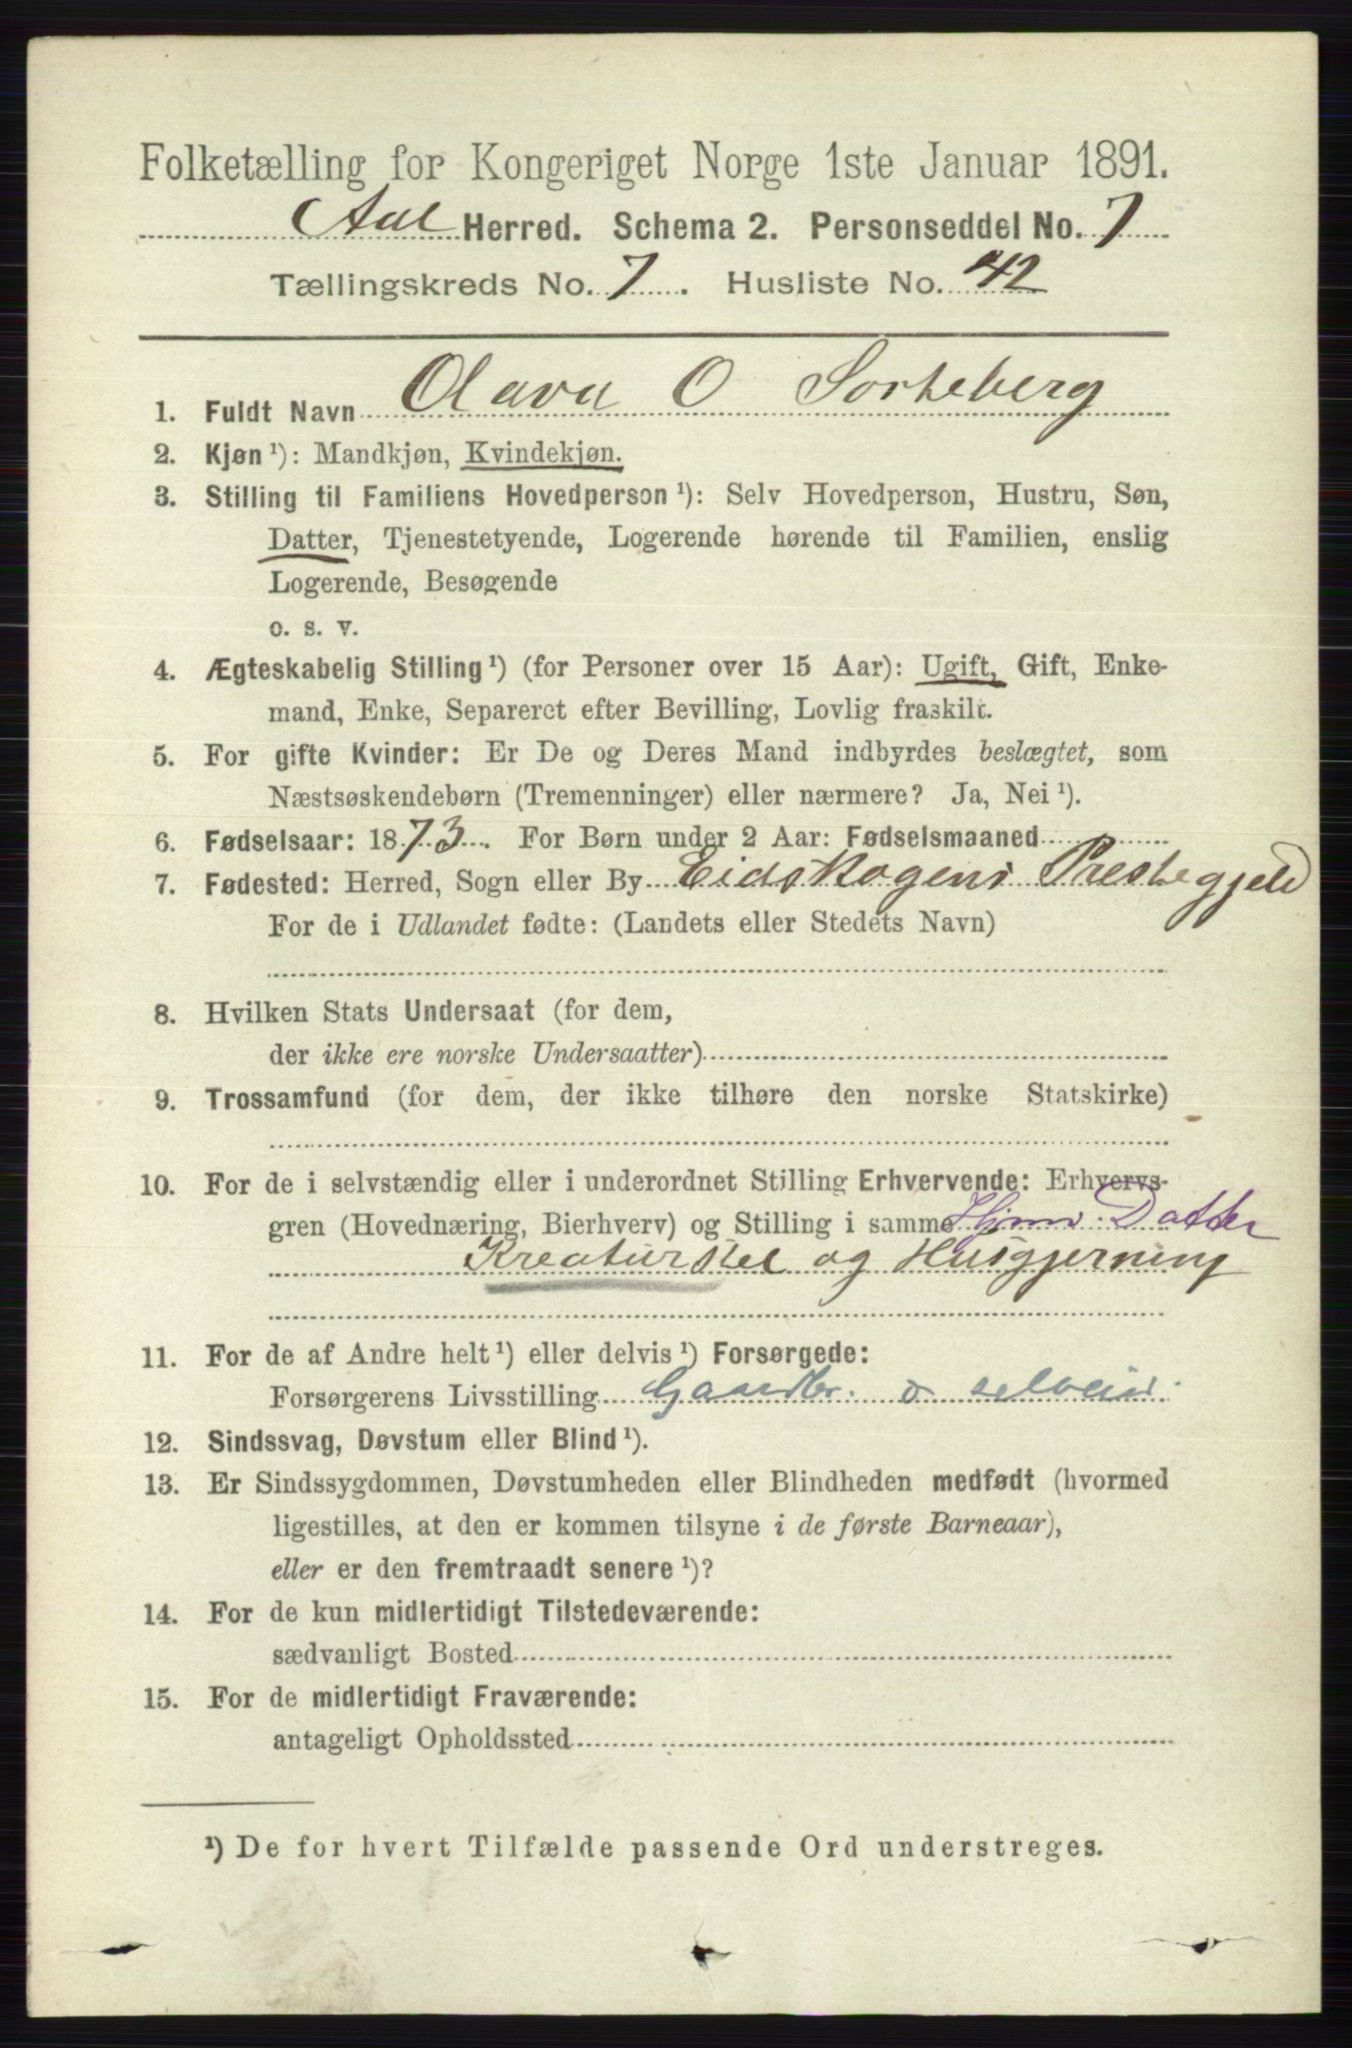 Folketælling for Kongeriget Norge 1ste Januar 1891.
Aal Herred. Schema 2. Personseddel No. 7
Tællingskreds No. 7. Husliste No. 42
1. Fuldt Navn Olava O Sorteberg
2. Kjøn ¹): Mandkjøn, Kvindekjøn.
3. Stilling til Familiens Hovedperson ¹): Selv Hovedperson, Hustru, Søn,
Datter, Tjenestetyende, Logerende hørende til Familien, enslig
Logerende, Besøgende
o. s. v.
4. Ægteskabelig Stilling ¹) (for Personer over 15 Aar): Ugift, Gift, Enke-
mand, Enke, Separeret efter Bevilling, Lovlig fraskilt.
5. For gifte Kvinder: Er De og Deres Mand indbyrdes beslægtet, som
Næstsøskendebørn (Tremenninger) eller nærmere? Ja, Nei ¹).
6. Fødselsaar: 1873. For Børn under 2 Aar: Fødselsmaaned
7. Fødested: Herred, Sogn eller By Eidskogens Prestegjeld
For de i Udlandet fødte: (Landets eller Stedets Navn)
8. Hvilken Stats Undersaat (for dem,
der ikke ere norske Undersaatter)
9. Trossamfund (for dem, der ikke tilhøre den norske Statskirke)
10. For de i selvstændig eller i underordnet Stilling Erhvervende: Erhvervs-
gren (Hovednæring, Bierhverv) og Stilling i samme Hjms. Datter
Kreaturstel og Husgjerning
11. For de af Andre helt ¹) eller delvis ¹) Forsørgede:
Forsørgerens Livsstilling Gaardbr. o selveier
12. Sindssvag, Døvstum eller Blind ¹).
13. Er Sindssygdommen, Døvstumheden eller Blindheden medfødt (hvormed
ligestilles, at den er kommen tilsyne i de første Barneaar),
eller er den fremtraadt senere ¹)?
14. For de kun midlertidigt Tilstedeværende:
sædvanligt Bosted
15. For de midlertidigt Fraværende:
antageligt Opholdssted
¹) De for hvert Tilfælde passende Ord understreges.